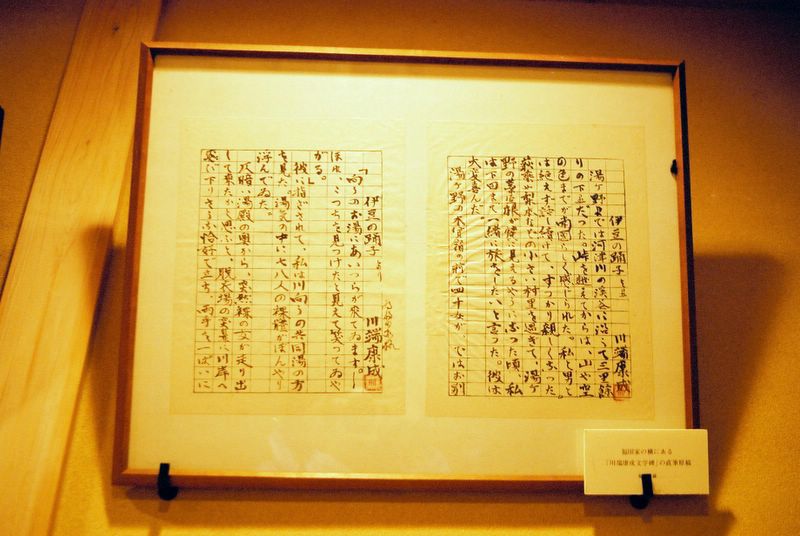 伊豆の踊子より 川端康成
湯ヶ野までは河津川の渓谷に沿うて三里餘
りの下りだつた。峠を越えてからは、山や空
の色までが南国らしく感じられた。私と男と
は絶えず話し続けて、すつかり親しくなつた。
荻乗や梨本なぞの小さい村里を過ぎて、湯ヶ
野の藁屋根が麓に見えるやうになつた頃、私
は下田まで一緒に旅をしたいと言つた。彼は
大変喜んだ。
湯ヶ野の木賃宿の前で四十女が、ではお別
伊豆の踊子 より 川端康成
「向うのお湯にあいつらが来てゐます。―
ほれ、こつちを見つけたと見えて笑つてゐや
がる。」
彼に指ざされて、私は川向うの共同湯の方
を見た。湯気の中に七八人の裸體がぼんやり
浮んでゐた。
仄暗い湯殿の奥から、突然裸の女が走り出
して来たかと思ふと、脱衣場の突鼻に川岸へ
飛び下りさうな恰好で立ち、両手を一ぱいに
福田家の横にある
「川端康成文学碑」の直筆原稿